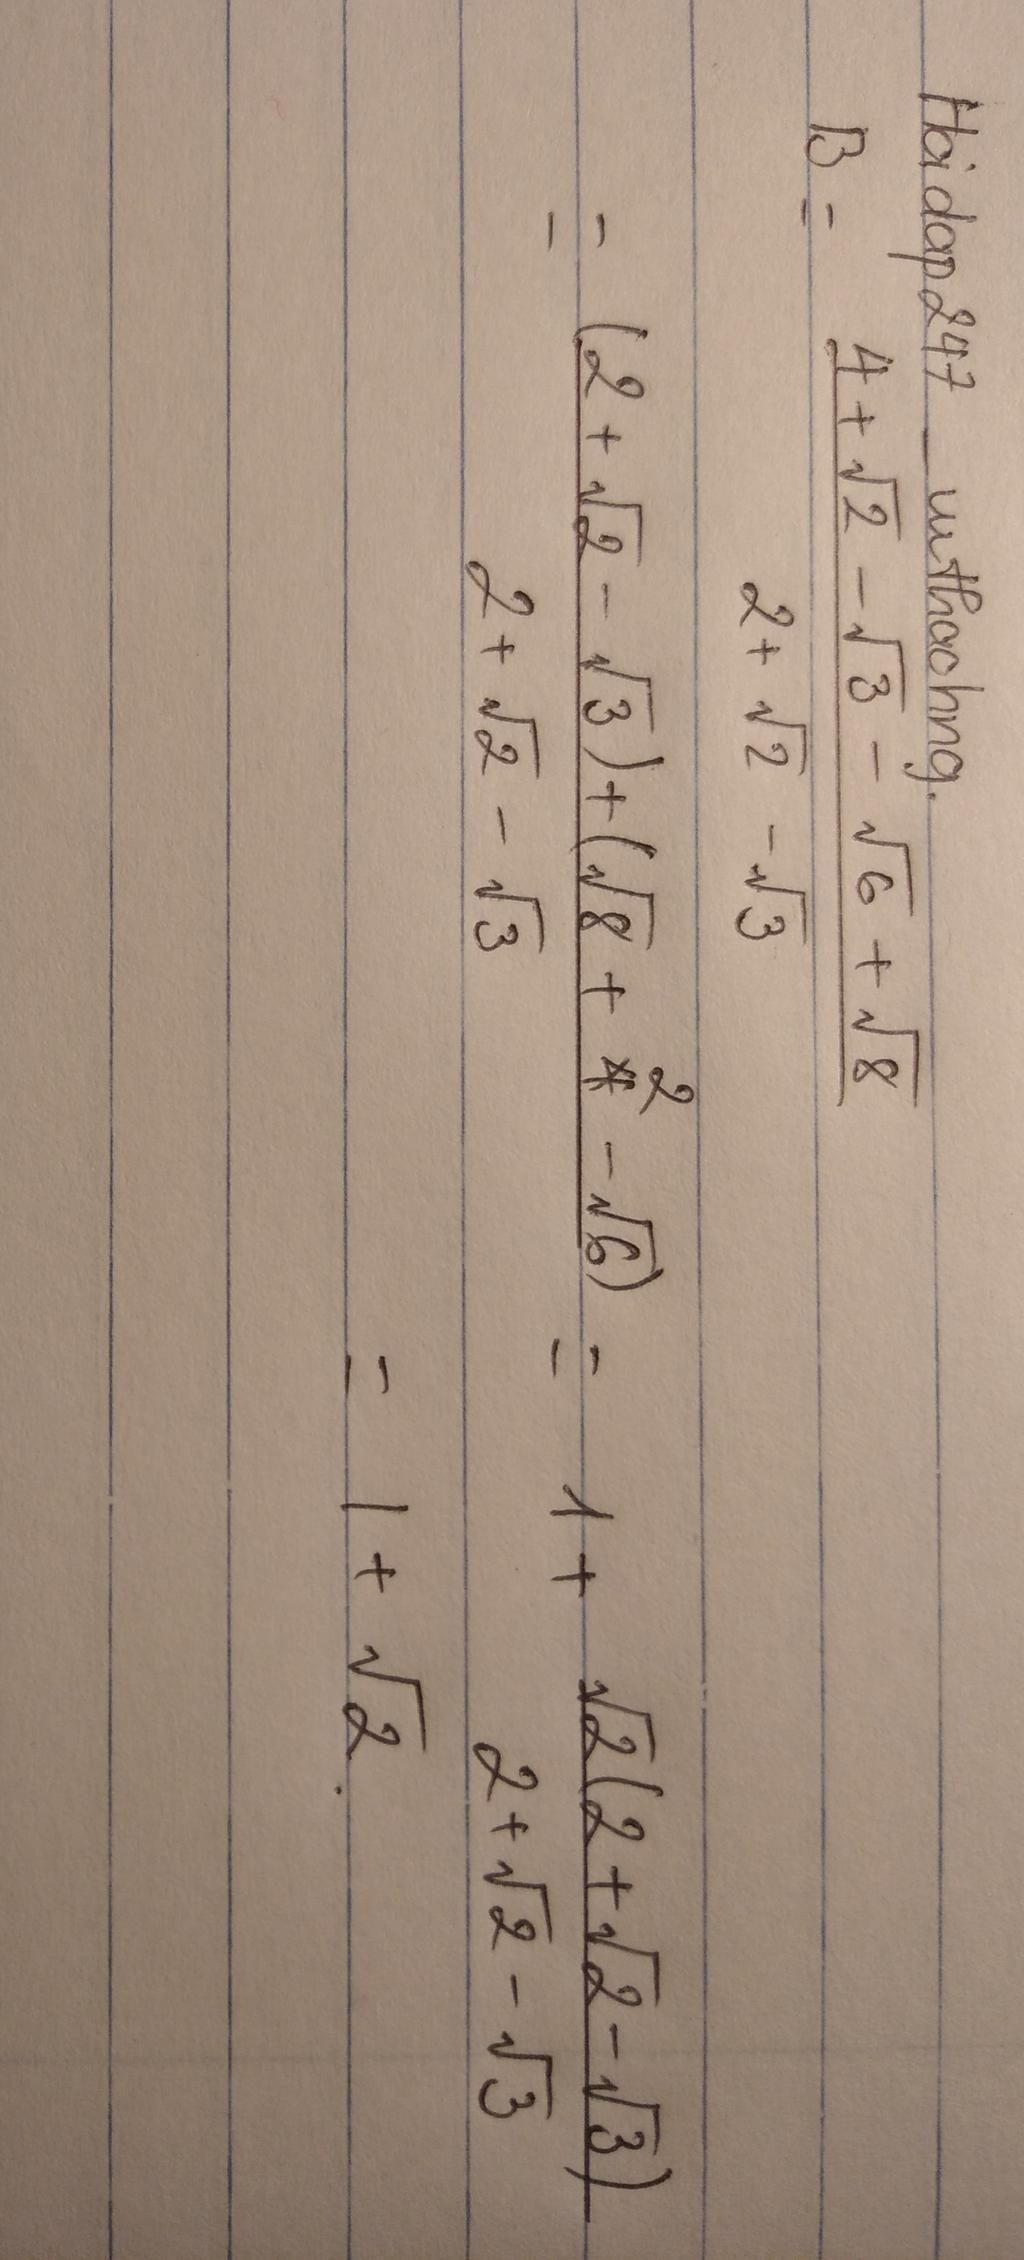 Hoidap247_uuthachng.
B = 4 + √2 - √3 - √6 + √8
2 + √2 - √3
= (2 + √2 - √3) + (√8 + 2 - √6) = 1 + √2(2 + √2 - √3)
2 + √2 - √3 2 + √2 - √3
= 1 + √2.